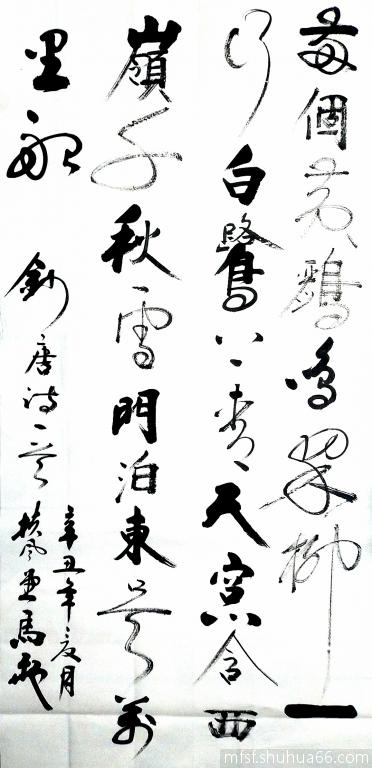 兩個黃鸝鳴翠柳一
行白鷺上青天窗含西
嶺千秋雪門泊東吳萬
里船 唐詩一首
辛丑年夏月
扶風馬
mfsf.shuhua66.com